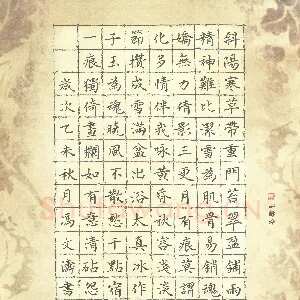 斜陽寒草帶重門苔翠盈鋪雨
精神難比潔雪為肌骨易銷魂
嬌無力倩影三更月有痕莫謂
化多情伴我詠黃昏秋容淺淡
節攢成雪滿盆出浴太真冰作
子玉為魂曉風不散愁千點宿
一痕獨倚畫欄如有意清砧怨
歲次乙未秋月馮文濤書